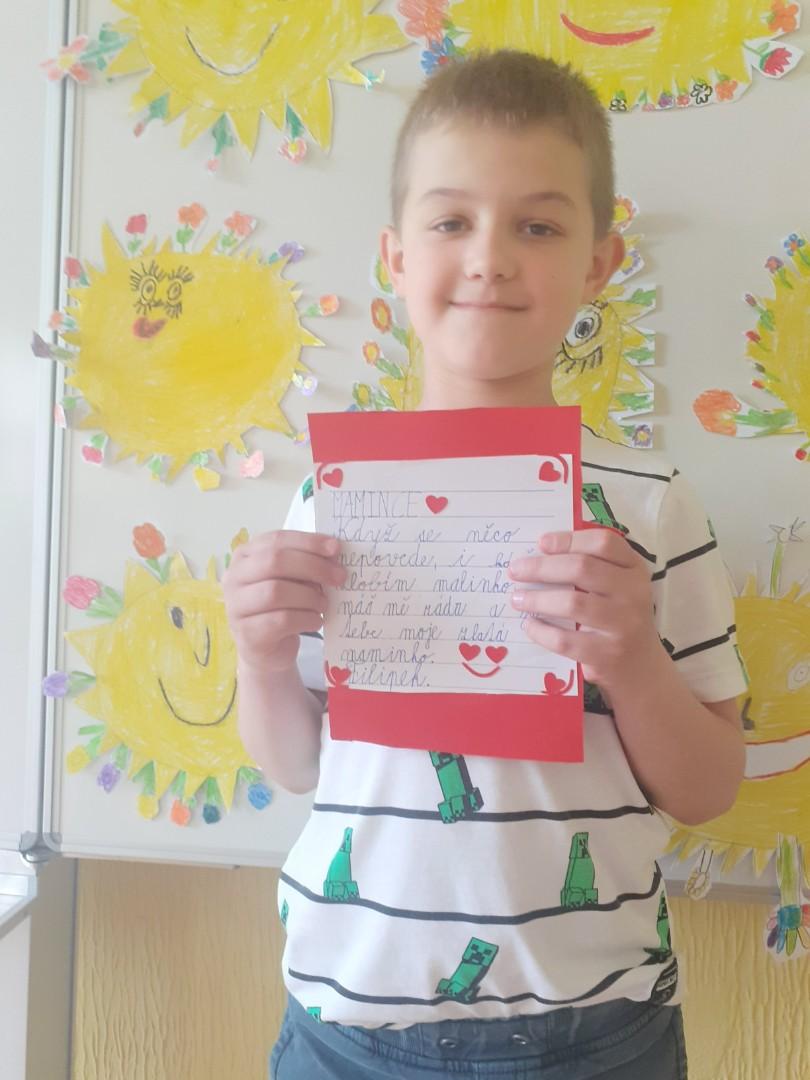 MAMINCE
Když se něco
nepovede, i
zlobím malinko
máš mě ráda a
Tebe moje zlatá
maminko.
Filipek.